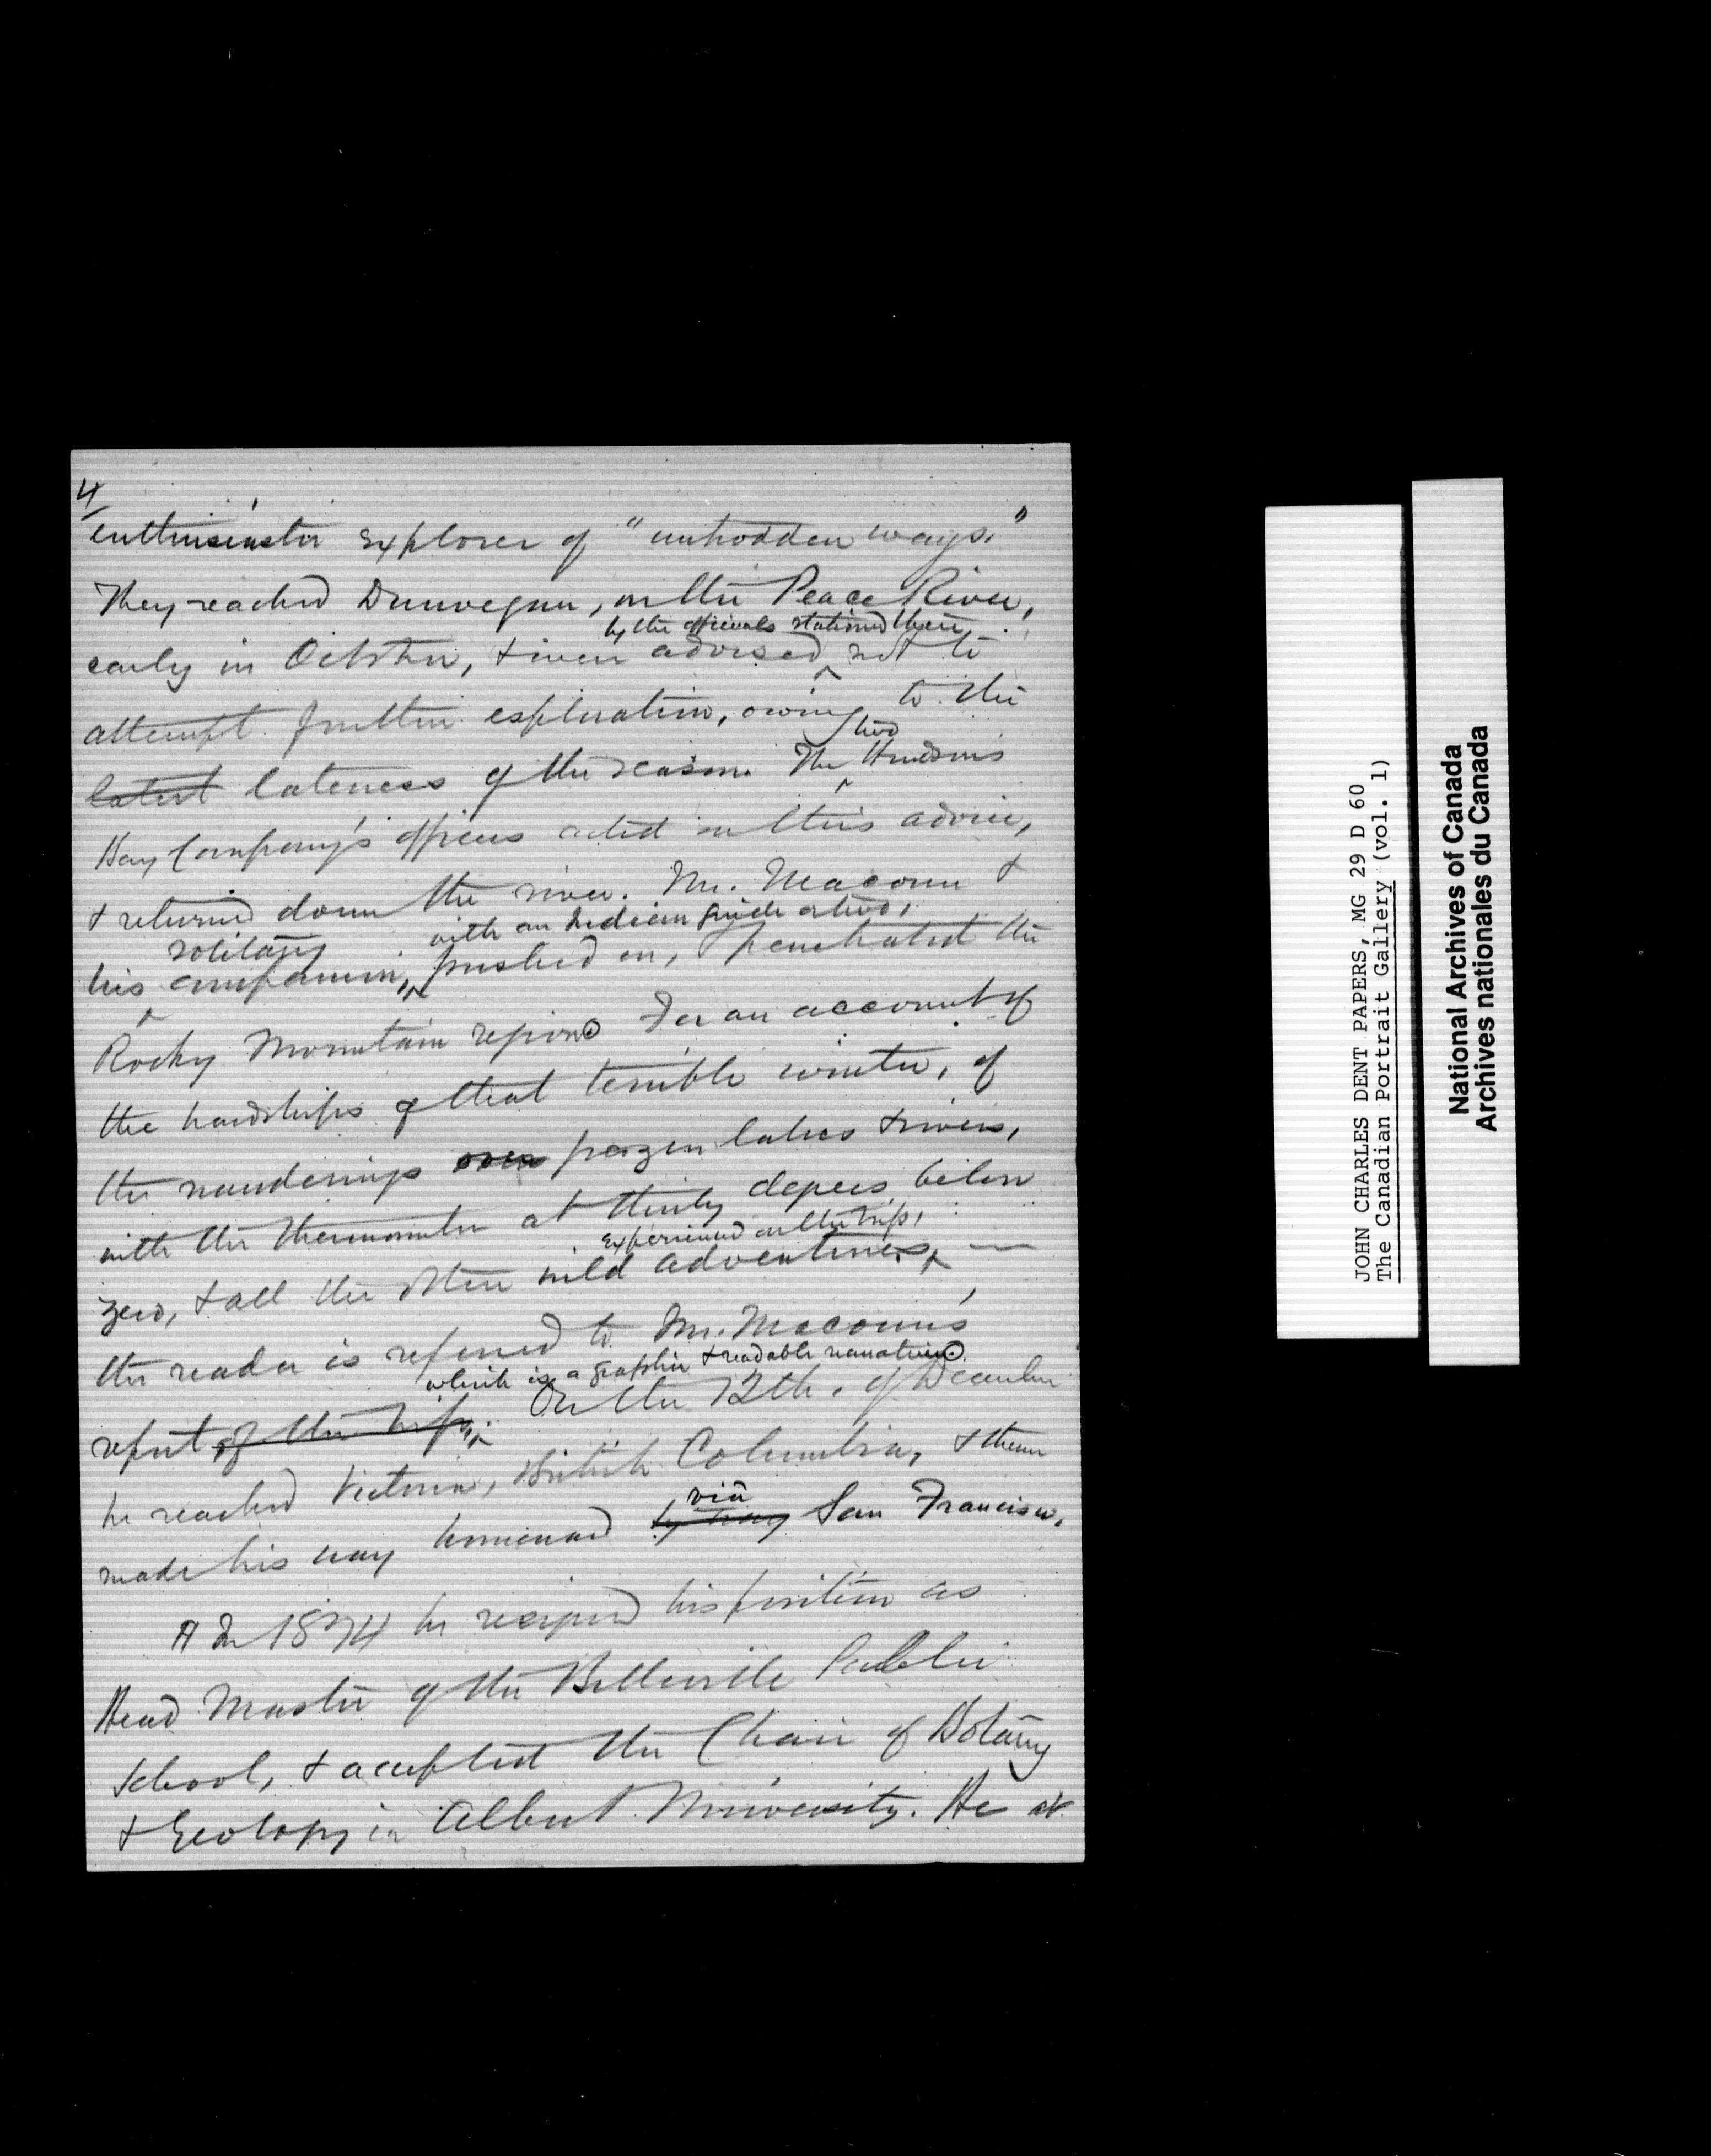 4/
enthusiastic explorer of "untrodden ways."
They reached Dunvegan, on the Peace River,
by the officials stationed there
early in October, & were advised not to
attempt further exploration, owing to the
two
latest lateness of the season. The Hudson's
Bay Company's officers acted on this advice,
& returned down the river. Mr. Macoun &
solitary with an Indian guide or two,
his companion, pushed on, & penetrated the
Rocky Mountain region. For an account of
the hardships of that terrible winter, of
the wanderings over frozen lakes & rivers,
with the thermometer at thirty degrees below
experienced on the trip,
zero, & all the other wild adventures, —
the reader is referred to Mr. Macoun's
which is a graphic & readable narrative.
report of the trip; On the 12th. of December
he reached Victoria, British Columbia, & thence
via
made his way homeward by way San Francisco.
In 1874 he resigned his position as
Head Master of the Belleville Public
School, & accepted the Chair of Botany
& Geology in Albert University. He at
JOHN CHARLES DENT PAPERS, MG 29 D 60
The Canadian Portrait Gallery (vol. 1)
National Archives of Canada
Archives nationales du Canada